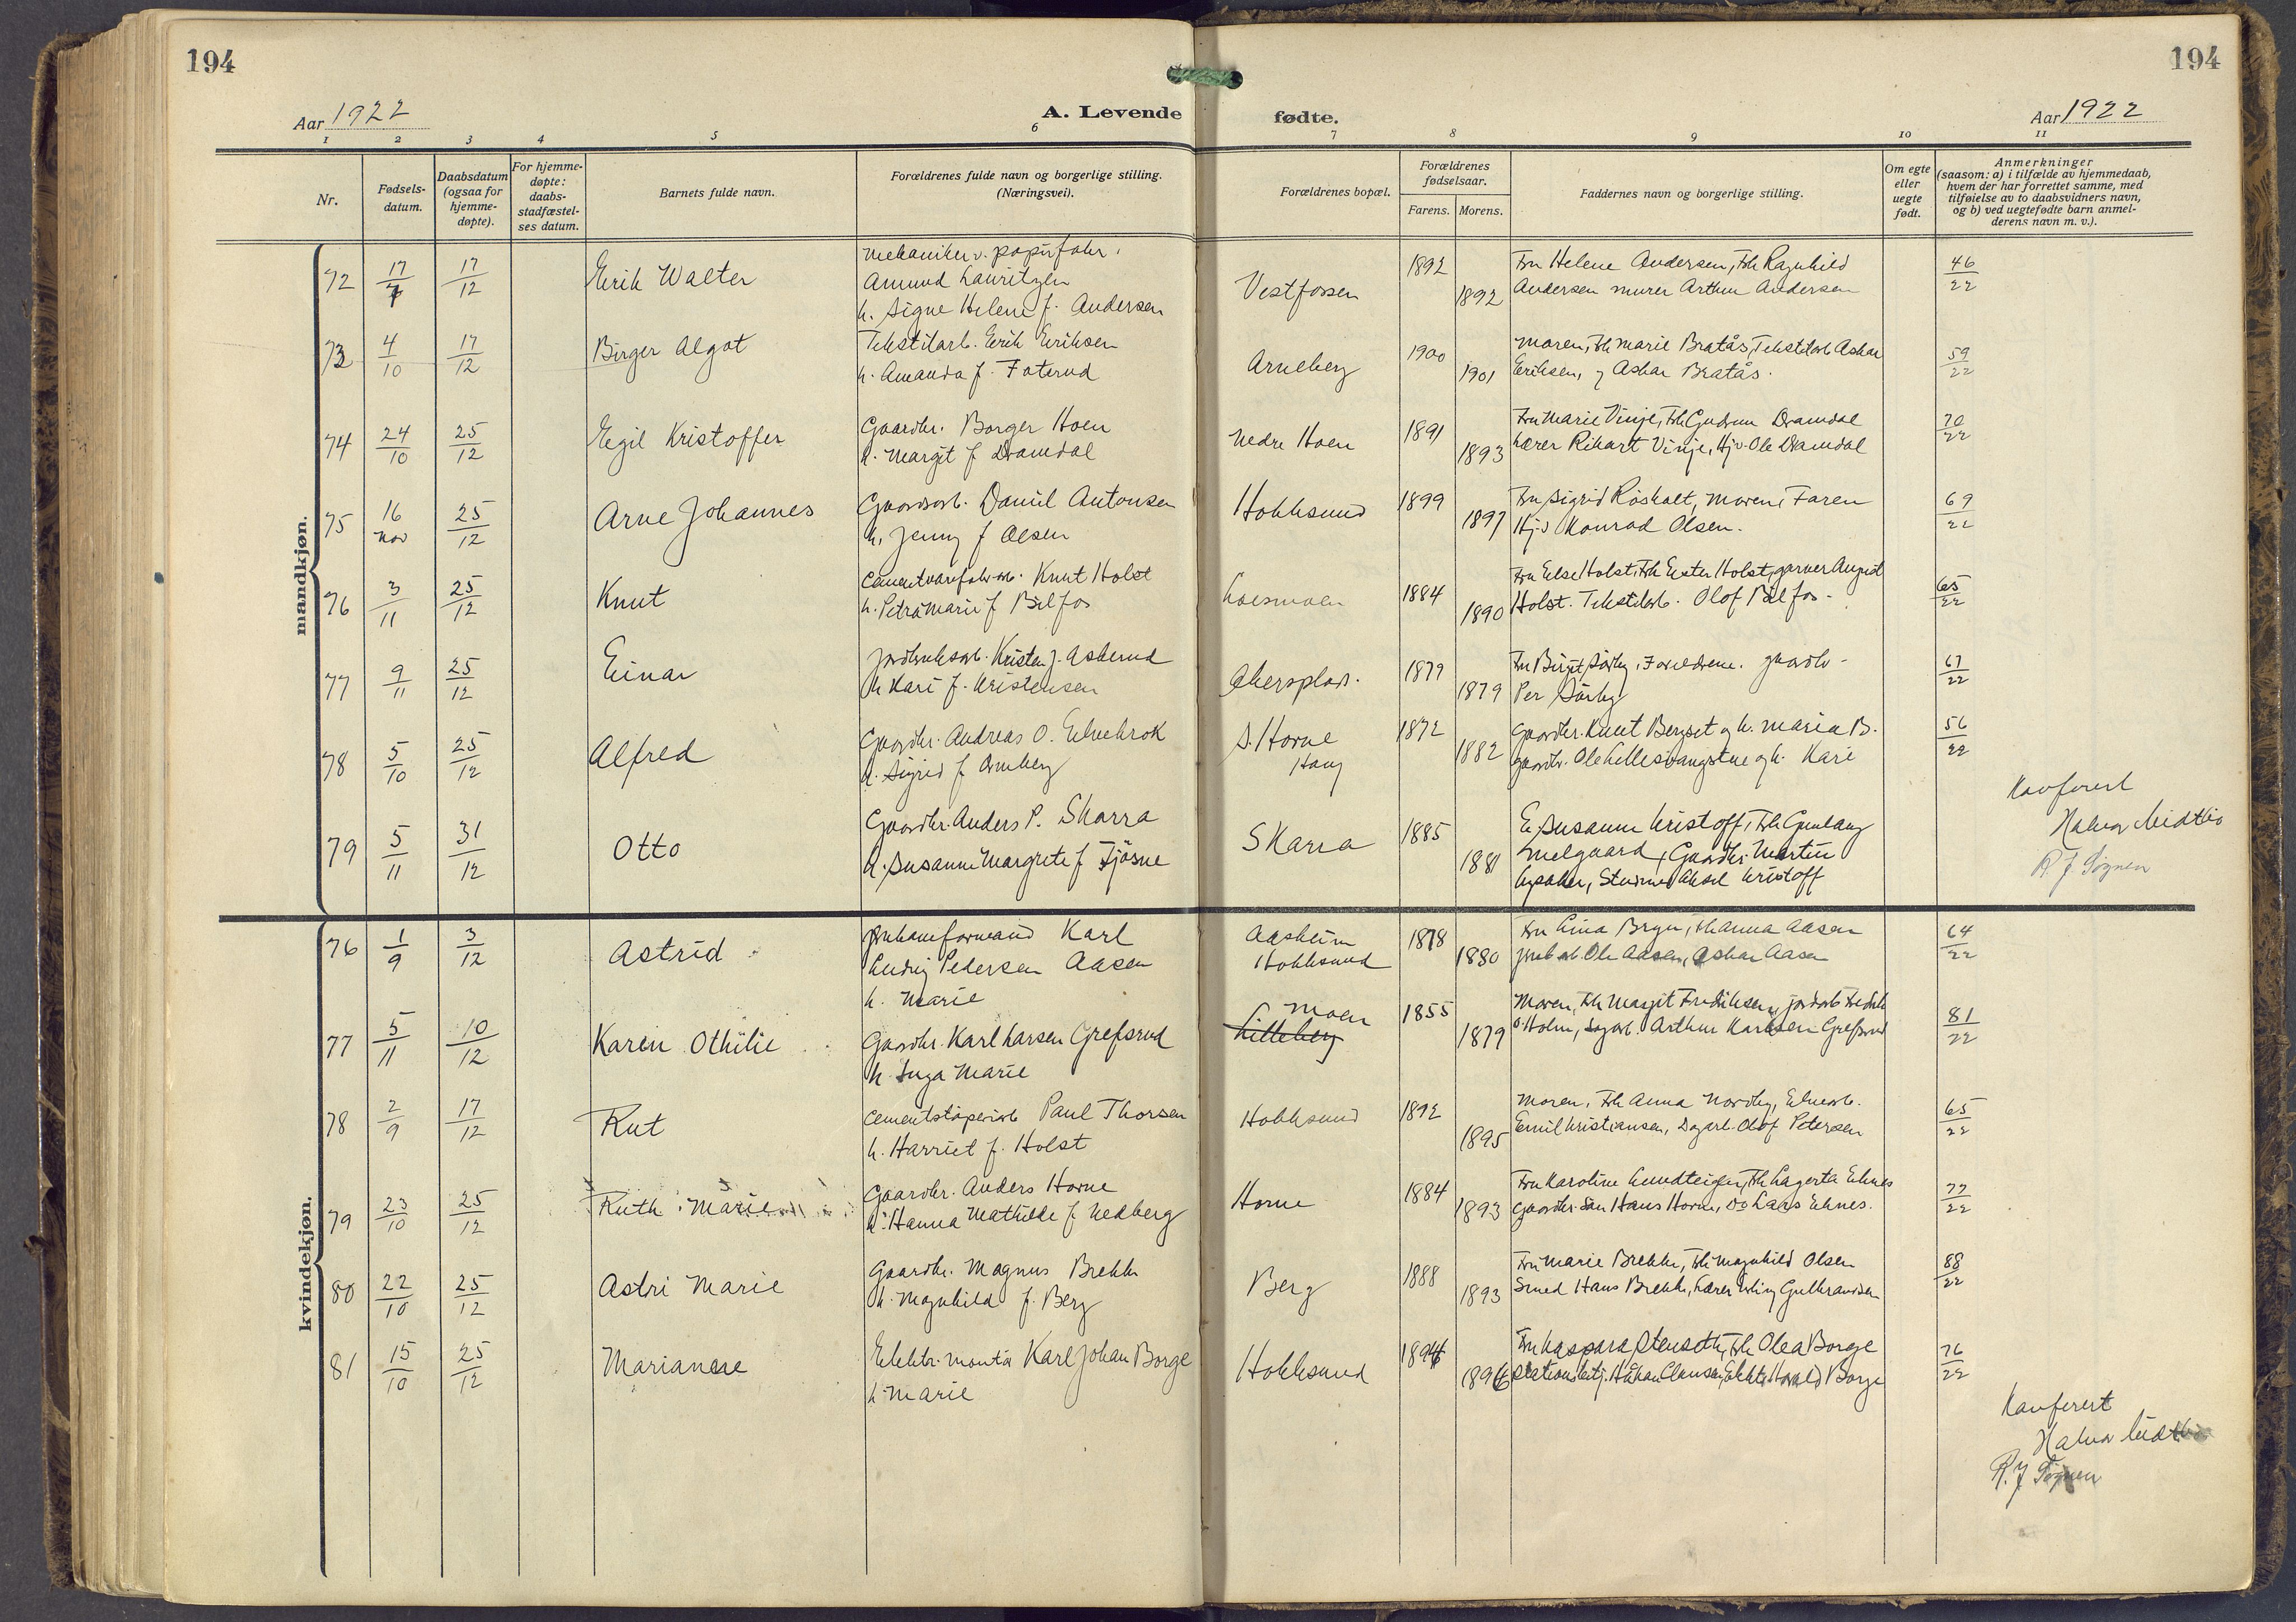 194
194
Aar 1922
A. Levende
fødte.
Aar 1922
1 2 3 4 5 6 7 8 9 10 11
Nr.
Fødsels-
datum.
Daabsdatum
(ogsaa for
hjemme-
døpte).
For hjemme-
døpte:
daabs-
stadfæstel-
ses datum.
Barnets fulde navn.
Forældrenes fulde navn og borgerlige stilling.
(Næringsvei).
Forældrenes bopæl.
Forældrenes
fødselsaar.
Farens. Morens.
Faddernes navn og borgerlige stilling.
Om egte
eller
uegte
født.
Anmerkninger
(saasom: a) i tilfælde av hjemmedaab,
hvem der har forrettet samme, med
tilføielse av to daabsvidners navn,
og b) ved uegtefødte barn anmel-
derens navn m. v.).
mandkjøn.
72 17/7 17/12 Erik Walter
Mekaniker v. papirfabr.
Amund Lauritzen
h. Signe Helene f. Andersen
Vestfossen 1892 1892
Fru Helene Andersen, Frk Ragnhild
Andersen murer Arthur Andersen
46/22
73 4/10 17/12 Birger Algot
Tekstilarb. Erik Eriksen
h. Amanda f. Foterud
Arneberg 1900 1901
Moren, Frk Marie Bratås, Tekstilarb Askar
Eriksen, og Askar Bratås.
59/22
74 24/10 25/12 Egil Kristoffer
Gaardbr. Borger Hoen
h. Margit f Dramdal
Nedre Hoen 1891 1893
Fru Marie Vinje, Frk Gudrun Dramdal
Lærer Rikart Vinje, Hj.v. Ole Dramdal
70/22
75 16 nov 25/12 Arne Johannes
Gaardsarb. Daniel Antonsen
h. Jenny f Olsen
Hokksund 1899 1897
Fru Sigrid Röskalt, Moren, Faren
Hj.v Konrad Olsen.
69/22
76 3/11 25/12 Knut
Cementvarefabr-arb. Knut Holst
h. Petra Marie f Bilfos
Loesmoen 1884 1890
Fru Else Holst, Frk Ester Holst, garver August
Holst. Tekstilarb. Olof Bilfos.
65/22
77 9/11 25/12 Einar
Jordbruksarb. Kristen J. Askerud
h Kari f. Kristensen
Akersplads. 1879 1879
Fru Birgit Sörby, Forældrene. gaardbr.
Per Sörby
67/22
78 5/10 25/12 Alfred
Gaardbr. Andreas O. Eknebrok
h. Sigrid f Arneberg
S. Horne
Haug
1872 1882
Gaardbr. Knut Bergset og h. Maria B.
gaardbr. Ole Lillesvangstue og h. Kari
56/22
79 5/11 31/12 Otto
Gaardbr. Anders P. Skarra
h. Susanne Margrete f Fjösne
Skarra 1885 1881
E. Susanne Kristoff, Frk Gunlaug
Smelgaard, Gaardbr. Martin
Aasaker, Studine Aksel Kristoff
Konferert
Halvor Midtbö
R. J. Tognen
kvindekjøn.
76 1/9 3/12 Astrid
Jernbaneformand Karl
Ludvig Pedersen Aasen
h. Marie
Aasheim
Hokksund
1878 1880
Fru Lina Bryn, Frk Anna Aasen
jernb arb. Ole Aasen, Oskar Aasen
64/22
77 5/11 10/12 Karen Othilie
Gaardbr. Karl Larsen Grefsrud
h. Inga Marie
Moen
Lilleberg
1855 1879
Moren, Frk Margit Fredriksen, jordarb Fredrik
O. Holm, Dagarb. Arthur Karlsen Grefsrud
81/22
78 2/9 17/12 Rut
Cementstöperiarb Paul Thorsen
h. Harriet f. Holst
Hokksund 1892 1895
Moren, Frk Anna Nordby, Elvearb.
Emil Kristiansen, Dagarb. Olof Petersen
65/22
79 23/10 25/12 Ruth Marie
Gaardbr. Anders Horne
h. Hanna Mathilde f Nedberg
Horne 1884 1893
Fru Karoline Lundteigen, Frk Lagerta Eknes
Gaardbr. Søn Hans Horne, Do Lars Eknes.
77/22
80 22/10 25/12 Astri Marie
Gaardbr. Magnus Brekke
h. Magnhild f. Berg
Berg 1888 1893
Fru Marie Brekke, Frk Magnhild Olsen
Smed Hans Brekke, Lærer Erling Gulbrandsen
88/22
81 15/10 25/12 Marianne
Elektr. montör Karl Johan Borge
h. Marie
Hokksund 1894 1896
Fru Kaspara Stenseth, Frk Olea Borge
Stationsbetj. Håkon Clausen, Elektr. Harald Borge
76/22
Konferert
Halvor Midtbö
R. J. Tognen